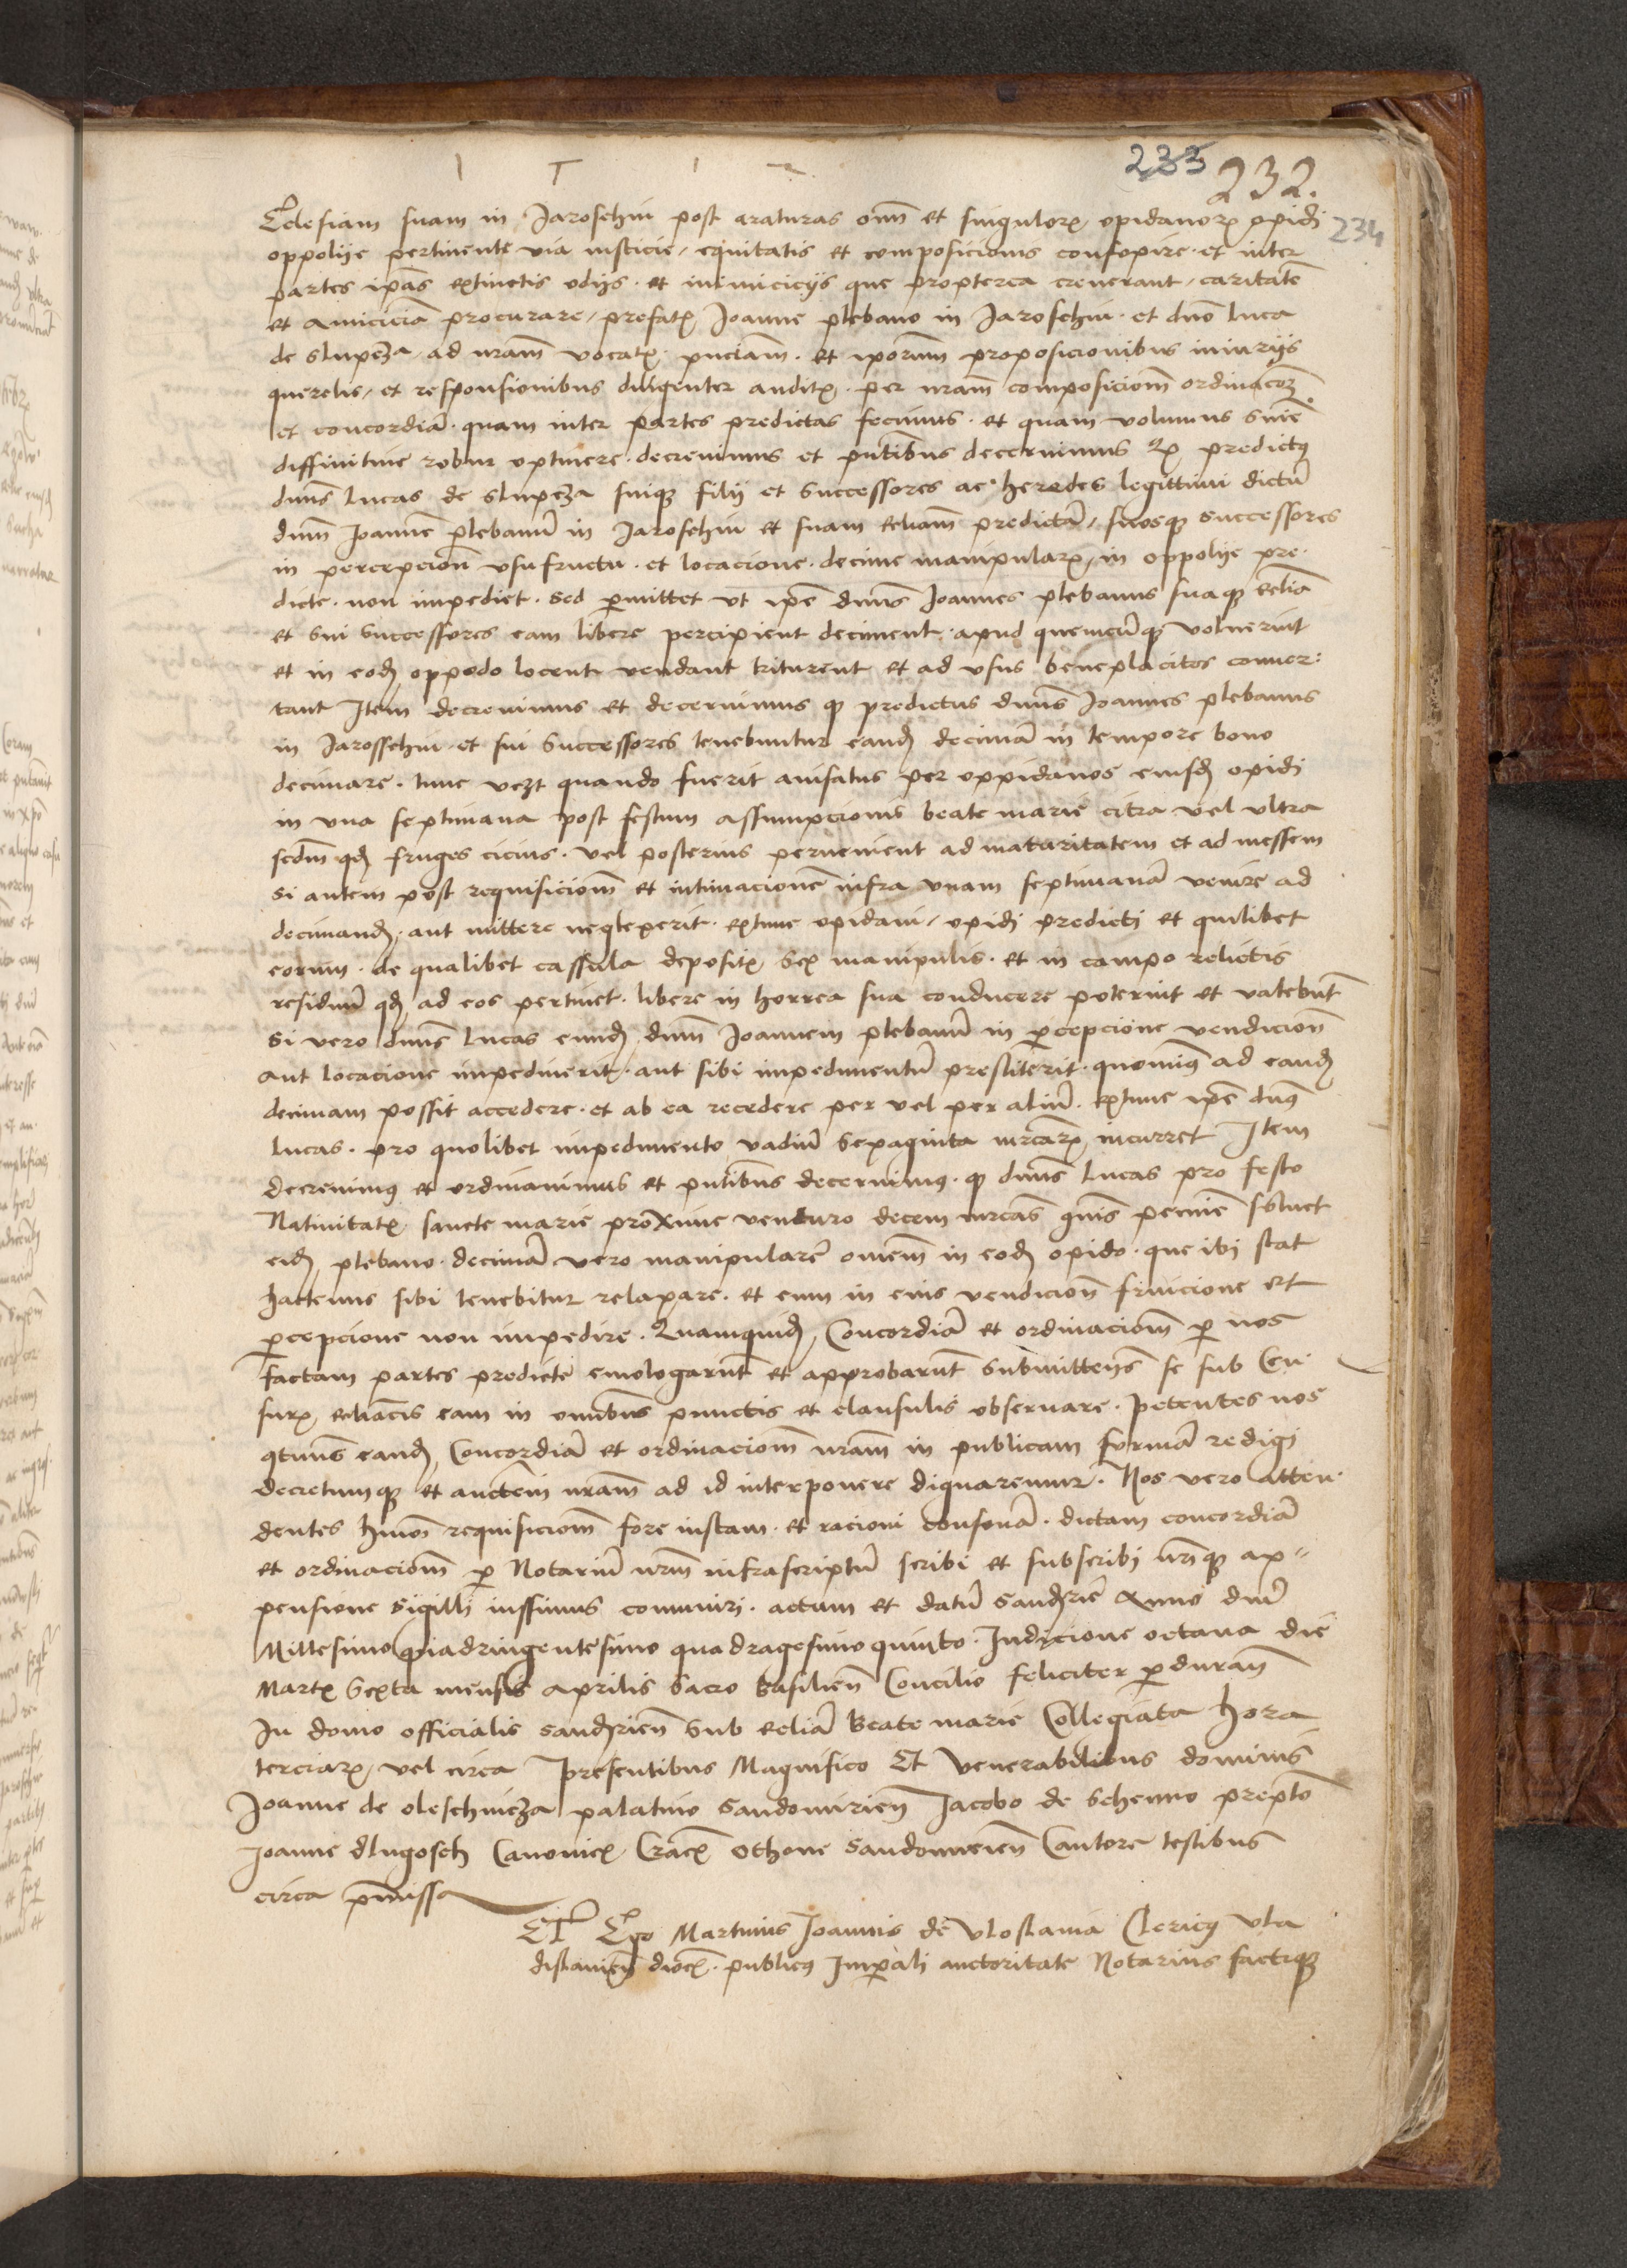 1 T 1 2
233 232.
234
Ecclesiam suam in Jaroschin post araturas om̄ et singulorꝝ opidanorꝝ opidi
oppolije pertinentē via iusticie, equitatis et composicionis consopire. et inter
partes ip̄as extinctis odijs. et inimicicijs que propterea creuerant, caritatē
et amiciciā procurare, prefatꝭ Joanne plebano in Jaroschin. et dn̄o Luca
de slupcza, ad nr̄am vocatꝭ pn̄ciam. et ip̄orum proposicionibus iniurijs
querelis, et responsionibus diligenter auditꝭ. per nr̄am composiciōm ordinacōꝫ
et concordiā. quam inter partes predictas fecimus. et quam volumus sn̄ie
diffinitiue robur optinere. decreuimus et pn̄tibus decernimus qꝫ predictꝰ
dn̄us Lucas de slupcza suiqꝫ filij et successores ac heredes legittimi dictū
dn̄m Joannē plebanū in Jaroschin et suam eccliam predictā, suosqꝫ successores
in percepcion̄ vsufructu. et locacione. decime manipularꝭ, in oppolije pre
dicte. non impediet. sed ꝑmittet vt ip̄e dn̄us Joannes plebanus suaqꝫ eccliā
et sui successores eam libere percipient deciment. apud quemcūqꝫ voluerint
et in eodꝫ oppodo locent vendant triturent et ad vsus beneplacitos conuer:
tant Item decreuimus et decernimus qꝫ predictus dn̄us Joannes plebanus
in Jarosschin et sui successores tenebuntur eandꝫ decimā in tempore bono
decimare. tunc vezt quando fuerit auisatus per oppidanos eiusdꝫ opidi
in vna septimana post festum assumpcionis beate marie citra vel vltra
scdm̄ qdꝫ fruges cicius. vel posterius peruenient ad maturitatem et ad messem
si autem post requisiciom̄ et intimacionē infra vnam septimanā venire ad
decimandꝫ. aut mittere neglexerit. extunc opidani, opidi predicti et quilibet
eorum. de qualibet cassula depositꝭ sex manipulis. et in campo relictis
residuū qdꝫ ad eos pertinet. libere in horrea sua conducere poterint et valebūt
si vero dn̄us Lucas eundꝫ dn̄m Joannem plebanū in ꝑcepcione vendicion̄
aut locacione impedierit. aut sibi impedimentū prestiterit. quominꝰ ad eandꝫ
decimam possit accedere. et ab ea recedere per vel per aliū. extunc ip̄e dn̄s
Lucas. pro quolibet impedimento vadiū sexaginta mrcarꝝ incurret Item
decreuimꝰ et ordinauimus et pn̄tibus decernimꝰ. qꝫ dn̄us Lucas pro festo
Natiuitatꝭ sancte marie proxime venturo decem mrcas gn̄is pecunie soluet
eidꝫ plebano. decimā vero manipularē omnem̄ in eodꝫ opido. que ibi stat
hactenus sibi tenebitur relaxare. et eum in eius vendicion̄ fruicione et
ꝑcepcione non impedire. Quamquidꝫ Concordiā et ordinaciom̄ ꝑ nos
factam partes predicte emologarūt et approbarūt submittens se sub Cen
surꝭ ecliacis eam in omnibus punctis et clausulis obseruare. petentes nos
qtinus eandꝫ Concordiā et ordinaciom̄ nr̄am in publicam formā redigi
decretumqꝫ et auctem̄ nr̄am ad id interponere dignaremur. Nos vero atten
dentes hm̄oi requisiciom̄ fore iustam. et racioni consonā. dictam concordiā
et ordinaciom̄ ꝑ Notariū nr̄m infrascriptū scribi et subscribi nr̄iqꝫ ap
pensione sigilli iussimus communiri. actum et datū sandꝫirie Anno dn̄i
Millesimo quadringentesimo quadragesimo quinto. Indicione octaua die
Martꝭ sexta mensis aprilis sacro basilien̄ Concilio feliciter ꝑduran̄
In domo officialis sandꝫirien̄ sub ecliā Beate marie Collegiata hora
terciarꝝ, vel circa Presentibus Magnifico Et Venerabilibus dominis
Joanne de oleschnicza palatino sandomirien̄ Jacobo de Schenno prepto
Joanne dlugosch Canonicꝭ Cracꝭ Othone sandomirien̄ Cantore testibus
circa p̄missa
ET Ego Martinus Joannis de Vloslauia Clericꝰ vla
dislauien̄ diocꝭ. publicꝰ Imꝑali auctoritate Notarius factiqꝫ